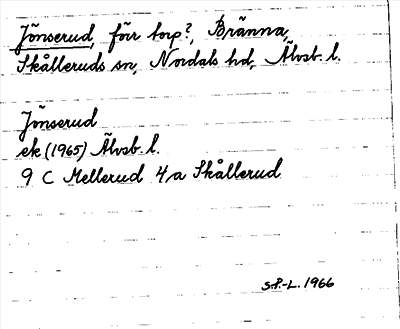 Jönserud, förr torp?, Bränna,
Skålleruds sn, Nordals hd, Älvsb. l.
Jönserud
ek (1965) Älvsb. l.
9 C Mellerud 4 a Skållerud
S.P.-L. 1966